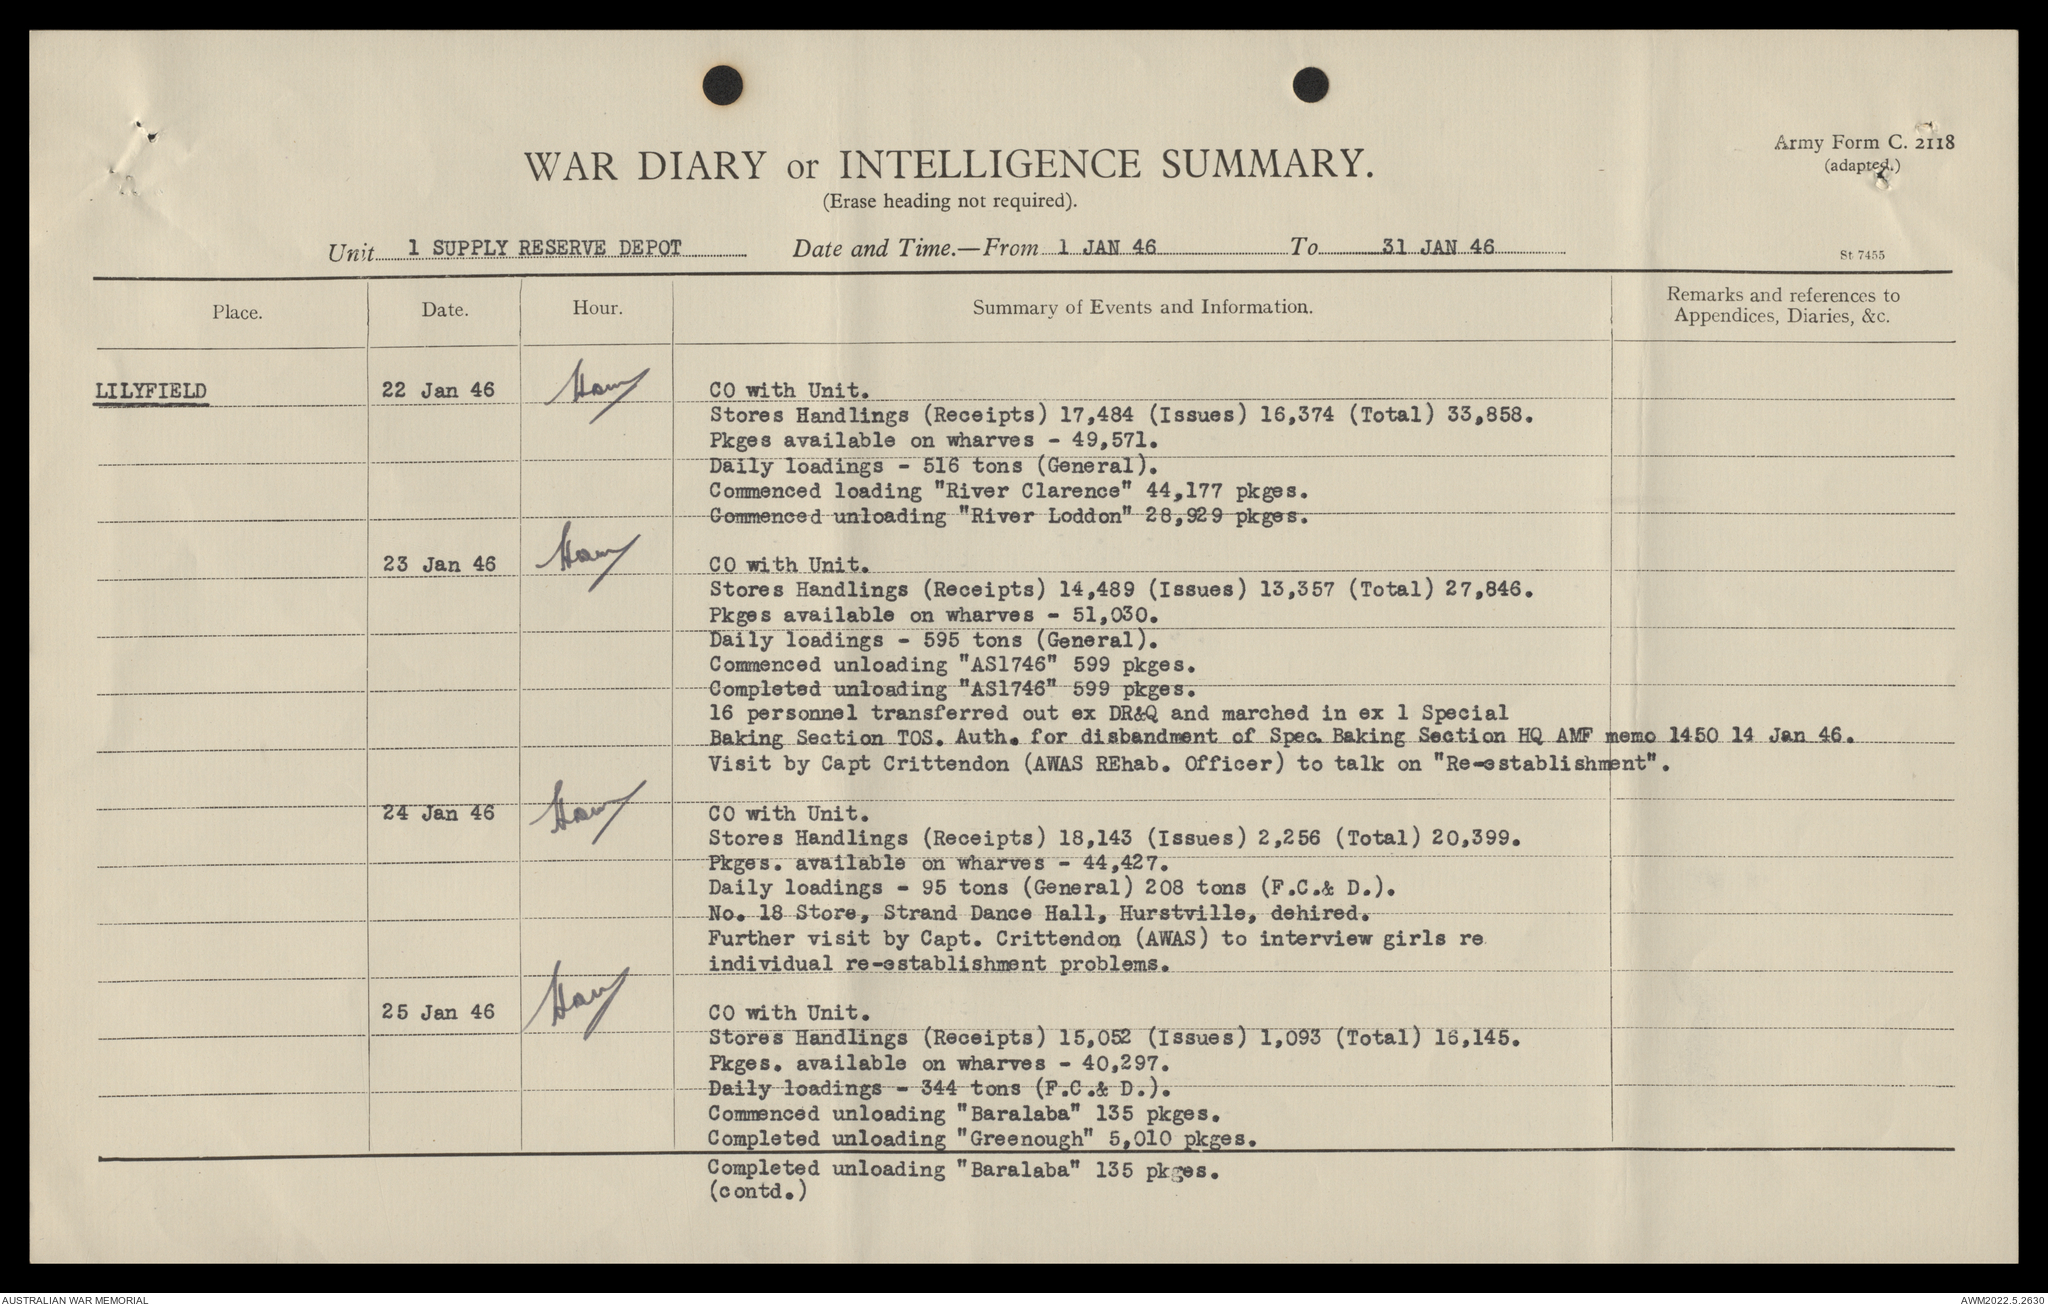 Army Form C. 2118
(adapted.)
WAR DIARY or INTELLIGENCE SUMMARY.
(Erase heading not required).
Unit 1 SUPPLY RESERVE DEPOT Date and Time.—From 1 JAN 46 To 31 JAN 46
St 7455
Place. Date. Hour. Summary of Events and Information. Remarks and references to
Appendices, Diaries, &c.
LILYFIELD 22 Jan 46 CO with Unit.
Stores Handlings (Receipts) 17,484 (Issues) 16,374 (Total) 33,858.
Pkges available on wharves - 49,571.
Daily loadings - 516 tons (General).
Commenced loading "River Clarence" 44,177 pkges.
Commenced unloading "River Loddon" 28,929 pkges.
23 Jan 46 CO with Unit.
Stores Handlings (Receipts) 14,489 (Issues) 13,357 (Total) 27,846.
Pkges available on wharves - 51,030.
Daily loadings - 595 tons (General).
Commenced unloading "AS1746" 599 pkges.
Completed unloading "AS1746" 599 pkges.
16 personnel transferred out ex DR&Q and marched in ex 1 Special
Baking Section TOS. Auth. for disbandment of Spec. Baking Section HQ AMF memo 1450 14 Jan 46.
Visit by Capt Crittendon (AWAS REhab. Officer) to talk on "Re-establishment".
24 Jan 46 CO with Unit.
Stores Handlings (Receipts) 18,143 (Issues) 2,256 (Total) 20,399.
Pkges. available on wharves - 44,427.
Daily loadings - 95 tons (General) 208 tons (F.C.& D.).
No. 18 Store, Strand Dance Hall, Hurstville, dehired.
Further visit by Capt. Crittendon (AWAS) to interview girls re
individual re-establishment problems.
25 Jan 46 CO with Unit.
Stores Handlings (Receipts) 15,052 (Issues) 1,093 (Total) 16,145.
Pkges. available on wharves - 40,297.
Daily loadings - 344 tons (F.C.& D.).
Commenced unloading "Baralaba" 135 pkges.
Completed unloading "Greenough" 5,010 pkges.
Completed unloading "Baralaba" 135 pkges.
(contd.)
AUSTRALIAN WAR MEMORIAL
AWM2022.5.2630